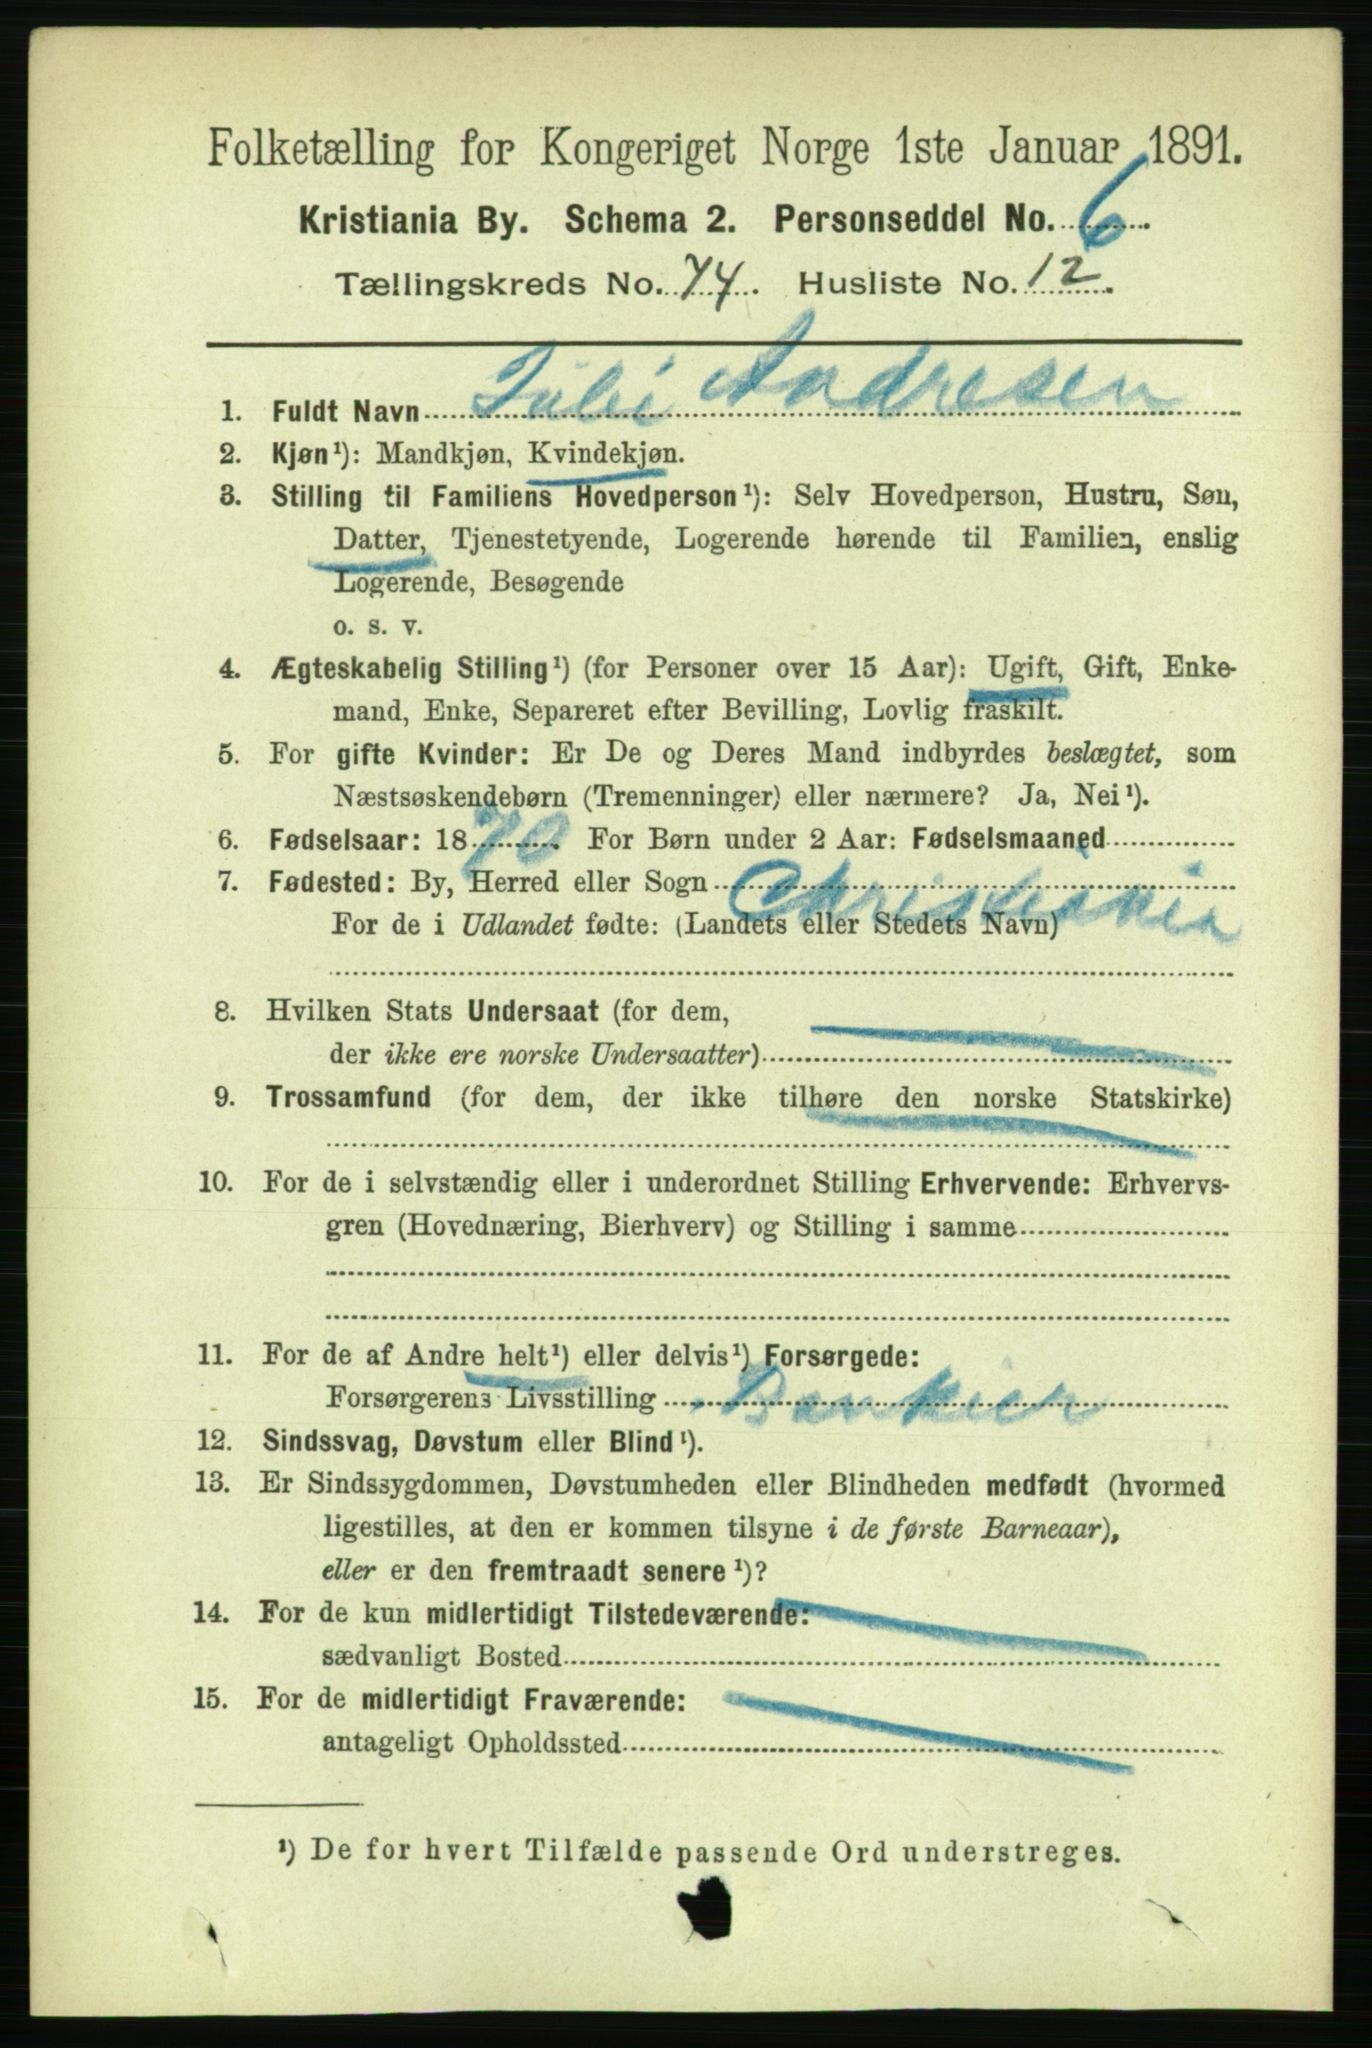 Folketælling for Kongeriget Norge 1ste Januar 1891.
Kristiania By. Schema 2. Personseddel No. 6.
Tællingskreds No. 74. Husliste No. 12.
1. Fuldt Navn Julie Andresen
2. Kjøn¹): Mandkjøn, Kvindekjøn.
3. Stilling til Familiens Hovedperson¹): Selv Hovedperson, Hustru, Søn,
Datter, Tjenestetyende, Logerende hørende til Familien, enslig
Logerende, Besøgende
o. s. v.
4. Ægteskabelig Stilling¹) (for Personer over 15 Aar): Ugift, Gift, Enke-
mand, Enke, Separeret efter Bevilling, Lovlig fraskilt.
5. For gifte Kvinder: Er De og Deres Mand indbyrdes beslægtet, som
Næstsøskendebørn (Tremenninger) eller nærmere? Ja, Nei¹).
6. Fødselsaar: 1870. For Børn under 2 Aar: Fødselsmaaned
7. Fødested: By, Herred eller Sogn Christiania
For de i Udlandet fødte: (Landets eller Stedets Navn)
8. Hvilken Stats Undersaat (for dem,
der ikke ere norske Undersaatter)
9. Trossamfund (for dem, der ikke tilhøre den norske Statskirke)
10. For de i selvstændig eller i underordnet Stilling Erhvervende: Erhvervs-
gren (Hovednæring, Bierhverv) og Stilling i samme
11. For de af Andre helt¹) eller delvis¹) Forsørgede:
Forsørgerens Livsstilling Bankier
12. Sindssvag, Døvstum eller Blind¹).
13. Er Sindssygdommen, Døvstumheden eller Blindheden medfødt (hvormed
ligestilles, at den er kommen tilsyne i de første Barneaar),
eller er den fremtraadt senere¹)?
14. For de kun midlertidigt Tilstedeværende:
sædvanligt Bosted
15. For de midlertidigt Fraværende:
antageligt Opholdssted
¹) De for hvert Tilfælde passende Ord understreges.